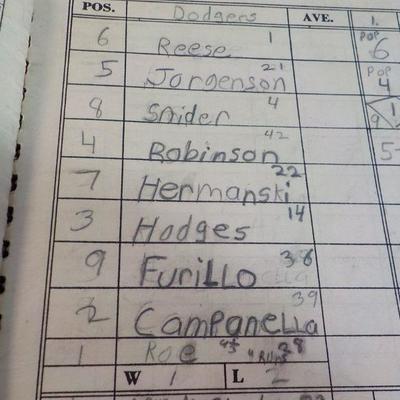 POS. Dodgers AVE. 1.
6 Reese 1 Pop 6
5 Jorgenson 21 Pop 4
8 Snider 4 9 1
4 Robinson 42 5-
7 Hermanski 22
3 Hodges 14
9 Furillo 38
2 Campanella 39
1 Roe 28
W 1 L 2